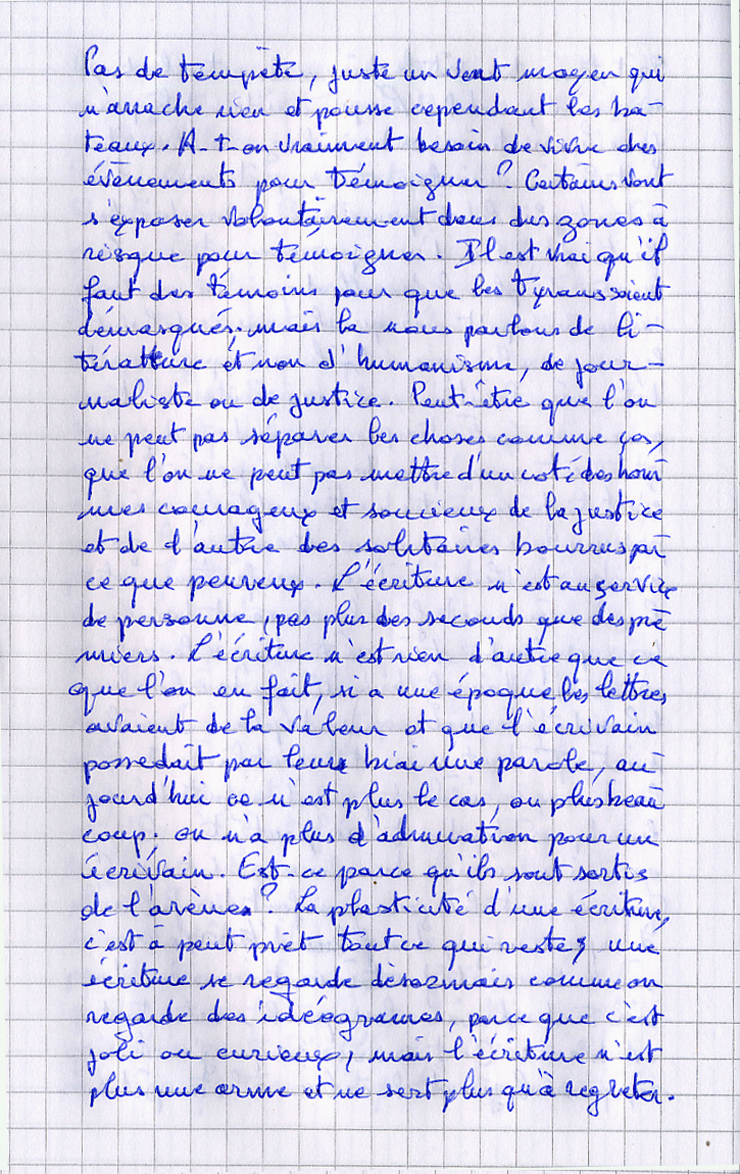 Pas de tempête, juste un vent moyen qui
n'arrache rien et pousse cependant les ba-
teaux. A-t-on vraiment besoin de vivre des
évènements pour témoigner ? Certains vont
s'exposer volontairement dans des zones à
risque pour témoigner. Il est vrai qu'il
faut des témoins pour que les tyrans soient
démasqués; mais la nous parlons de li-
térature et non d'humanisme, de jour-
naliste ou de justice. Peut-être que l'on
ne peut pas séparer les choses comme ças,
que l'on ne peut pas mettre d'un coté des hom
mes courageux et soucieux de la justice
et de l'autre des solitaires bourrus par
ce que peureux. L'écriture n'est au service
de personne, pas plus des seconds que des pre
miers. L'écriture n'est rien d'autre que ce
que l'on en fait, si a une époque les lettres
avaient de la valeur et que l'écrivain
possedait par leurs biai une parole, au
jourd'hui ce n'est plus le cas, ou plus beau
coup; on n'a plus d'admiration pour un
écrivain. Est-ce parce qu'ils sont sortis
de l'arènes ? La plasticité d'une écriture,
c'est à peut prêt tout ce qui reste, une
écriture se regarde désormais comme on
regarde des idéogrames, parce que c'est
joli ou curieux, mais l'écriture n'est
plus une arme et ne sert plus qu'à regreter.